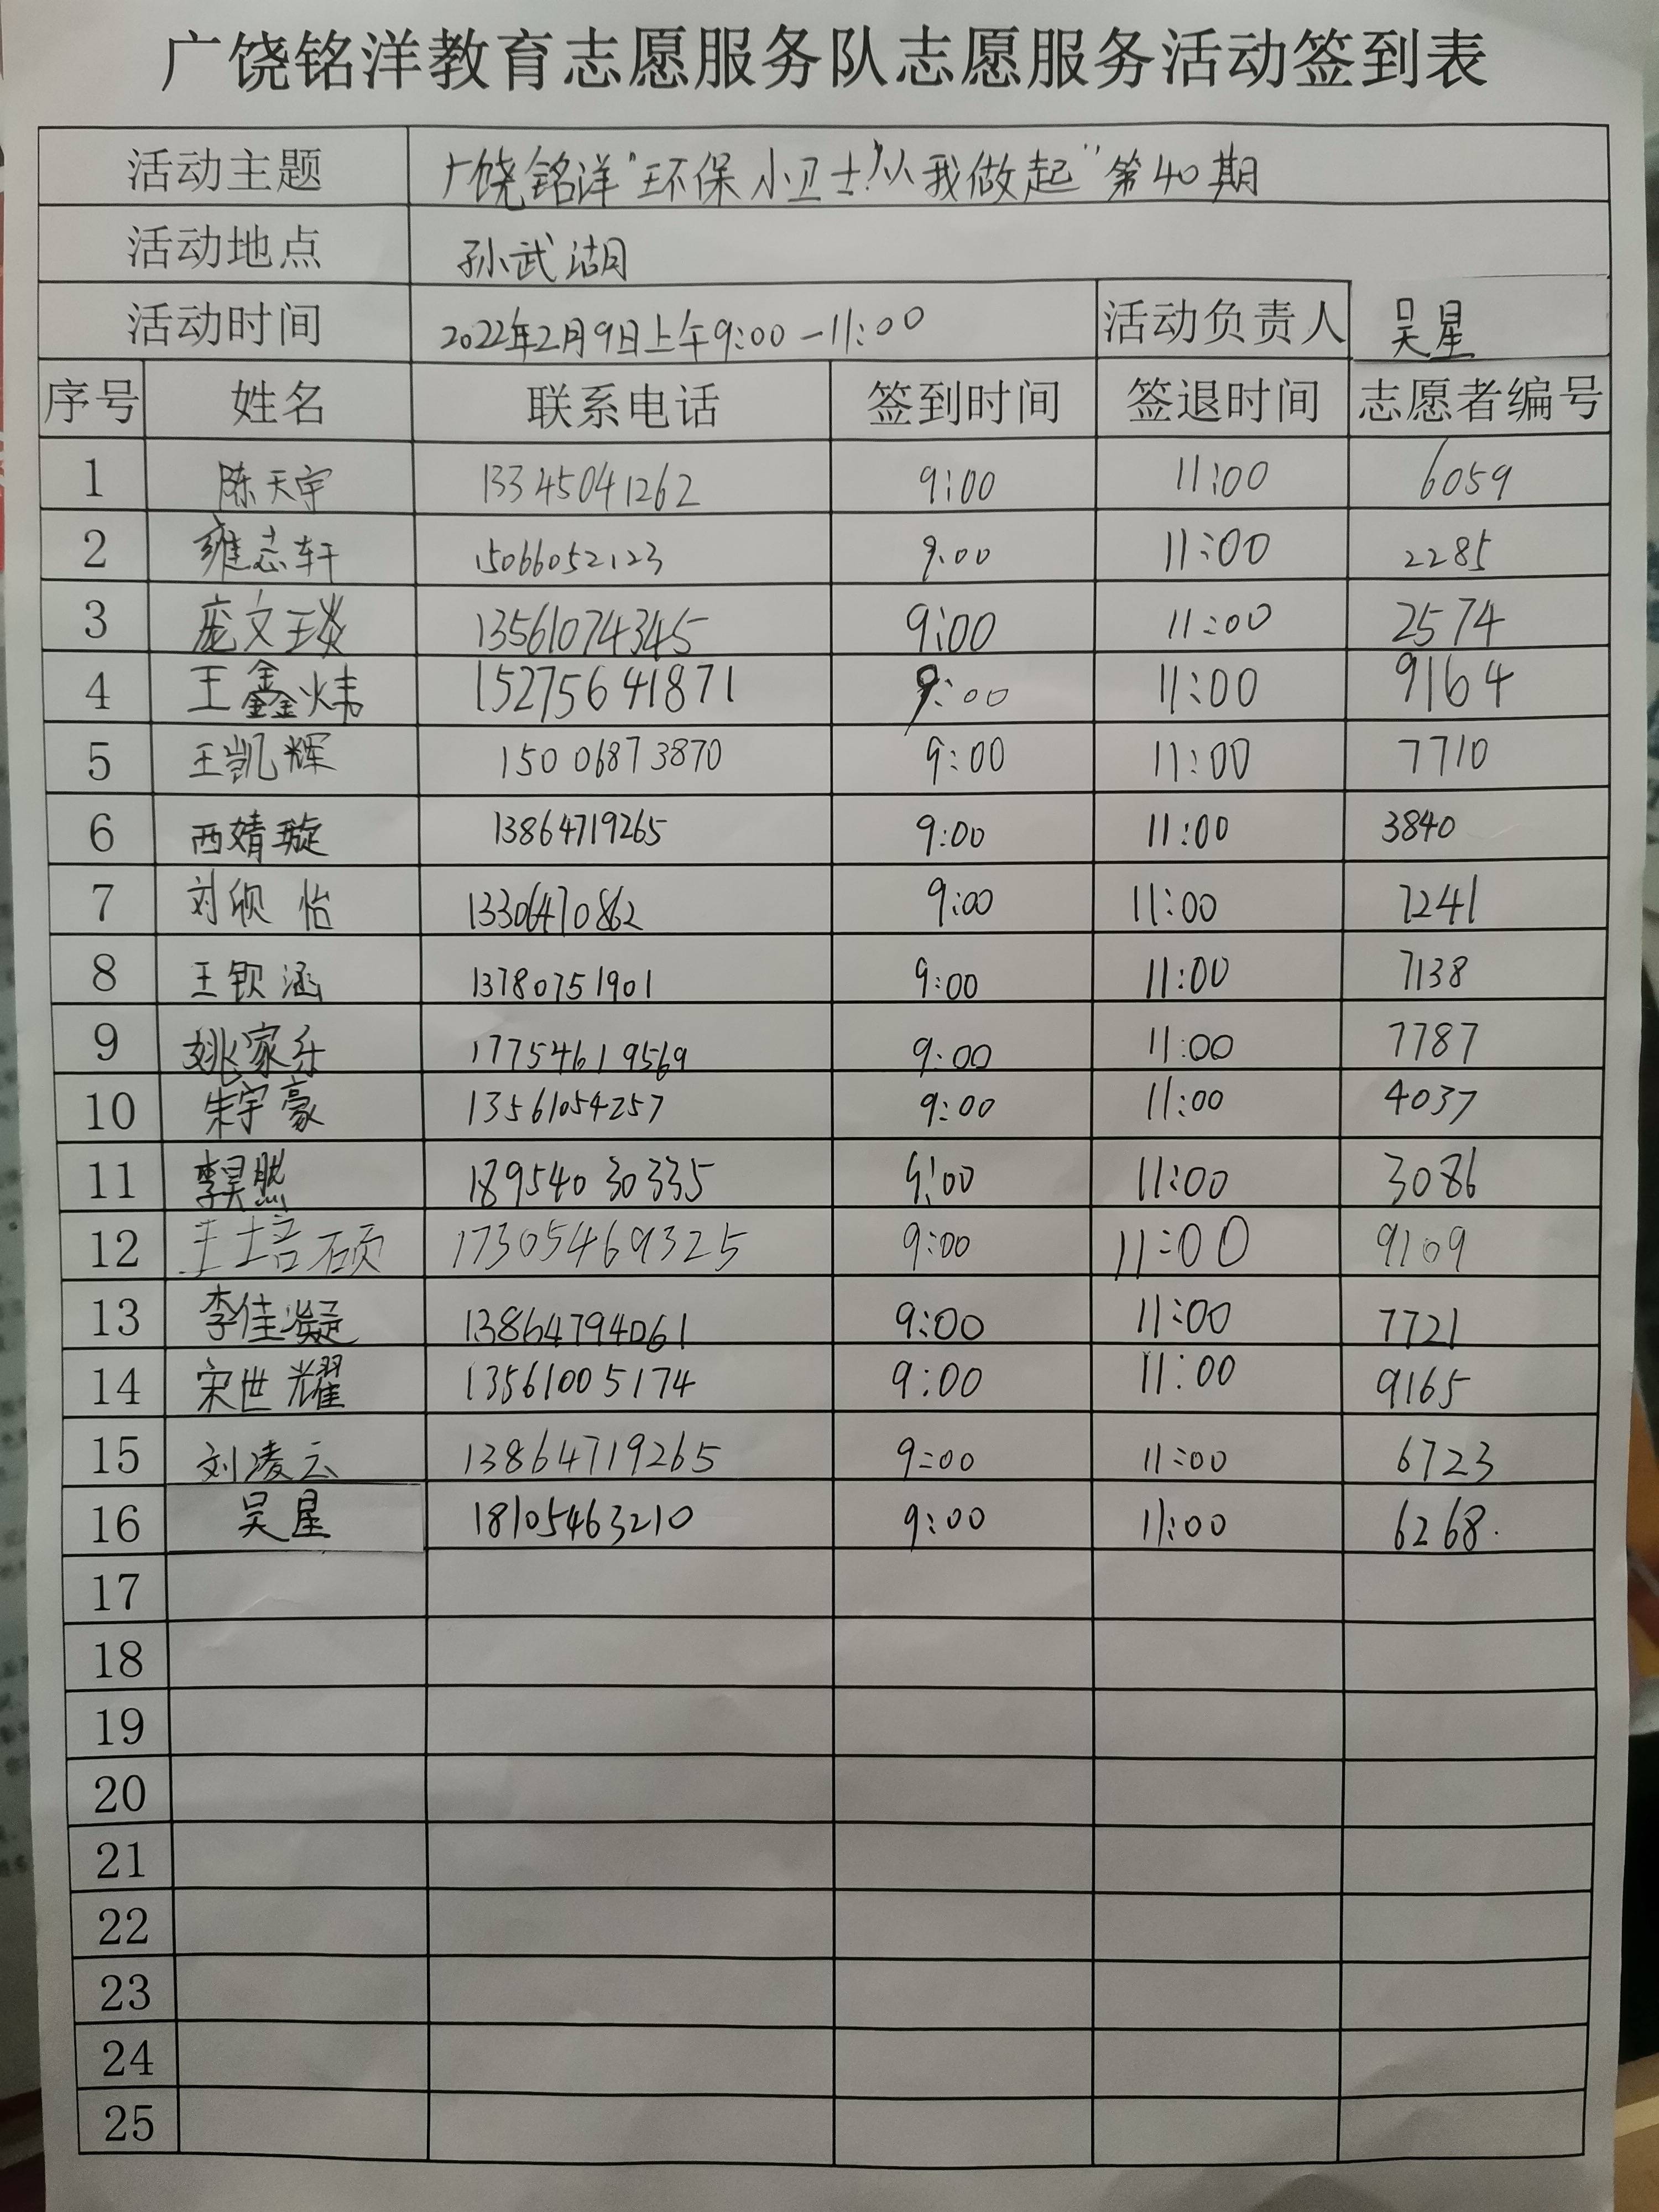 广饶铭洋教育志愿服务队志愿服务活动签到表
活动主题 广饶铭洋"环保小卫士!"从我做起"第40期
活动地点 孙武湖
活动时间 2022年2月9日上午9:00-11:00 活动负责人 吴星
序号 姓名 联系电话 签到时间 签退时间 志愿者编号
1 陈天宇 13345041262 9:00 11:00 6059
2 雍志轩 15066052123 9:00 11:00 2285
3 庞文琰 13561074345 9:00 11:00 2574
4 王鑫炜 15275641871 9:00 11:00 9164
5 王凯辉 15006873870 9:00 11:00 7710
6 西婧璇 13864719265 9:00 11:00 3840
7 刘欣怡 13306470862 9:00 11:00 7241
8 王钡涵 13780751901 9:00 11:00 7138
9 姚家乐 17754619569 9:00 11:00 7787
10 朱宇豪 13561054257 9:00 11:00 4037
11 李昊燃 18954030335 9:00 11:00 3086
12 王培硕 17305469325 9:00 11:00 9109
13 李佳凝 13864794061 9:00 11:00 7721
14 宋世耀 13561005174 9:00 11:00 9165
15 刘凌云 13864719265 9:00 11:00 6723
16 吴星 18105463210 9:00 11:00 6268.
17
18
19
20
21
22
23
24
25